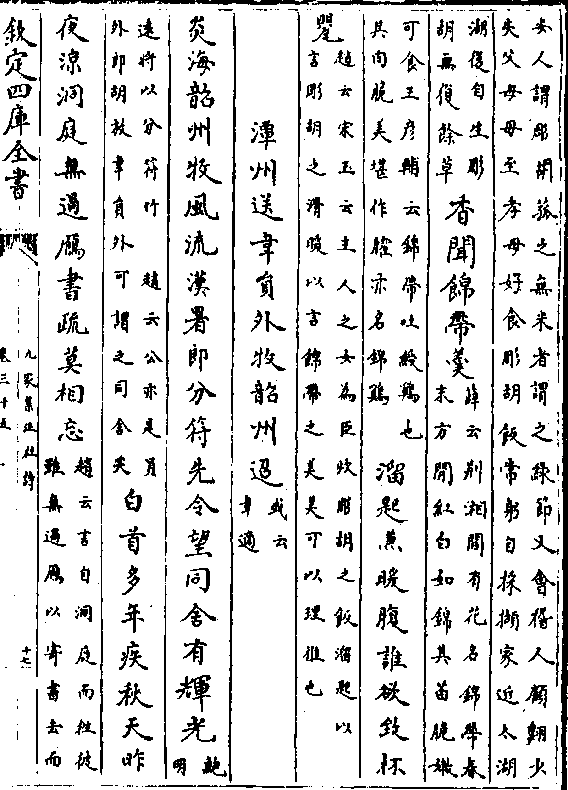 安人謂彫胡菰之無米者謂之緑節又會稽人顧翺少
失父母母至孝母好食彫胡飯常躬自採擷家近太湖
湖後自生彫
胡無復餘草
香聞錦帶羮
薛云荆湘間有花名錦帶春
末方開紅白如錦其苗脆嫩
可食王彦輔云錦帶吐綬鷄也
其肉脆美堪作臛亦名錦鷄
溜匙兼暖腹誰欲致杯
甖
趙云宋玉云主人之女為臣炊彫胡之飯溜匙以
言彫胡之滑暖以言錦帶之美美可以理推也
潭州送韋員外牧韶州迢
或云
韋適
炎海韶州牧風流漢署郎分符先令望同舍有輝光
鮑
明
遠將以分符竹 趙云公亦是員
外郎胡故韋員外可謂之同舍矣
白首多年疾秋天昨
夜涼洞庭無過鴈書疏莫相忘
趙云言自洞庭而往彼
雖無過鴈以寄書去而
欽定四庫全書
九家集注杜詩
卷三十五
十七